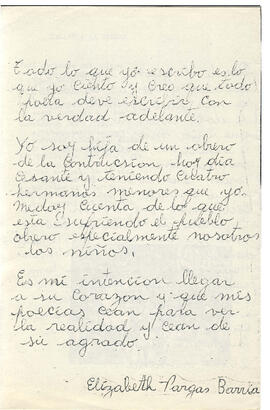 Todo lo que yo escribo es lo
que yo ciento y creo que todo
poeta deve escrivir con
la verdad adelante.
Yo soy hija de un obrero
de la Contrucsion hoy día
Cesante y teniendo cuatro
hermanos menores que yo.
Medoy cuenta de lo que
esta sufriendo el pueblo
obrero especialmente nosotros
los niños.
Es mi intencion llegar
a su Corazon y que mis
poecias cean para ver
la realidad y cean de
su agrado
Elizabeth Vargas Barría